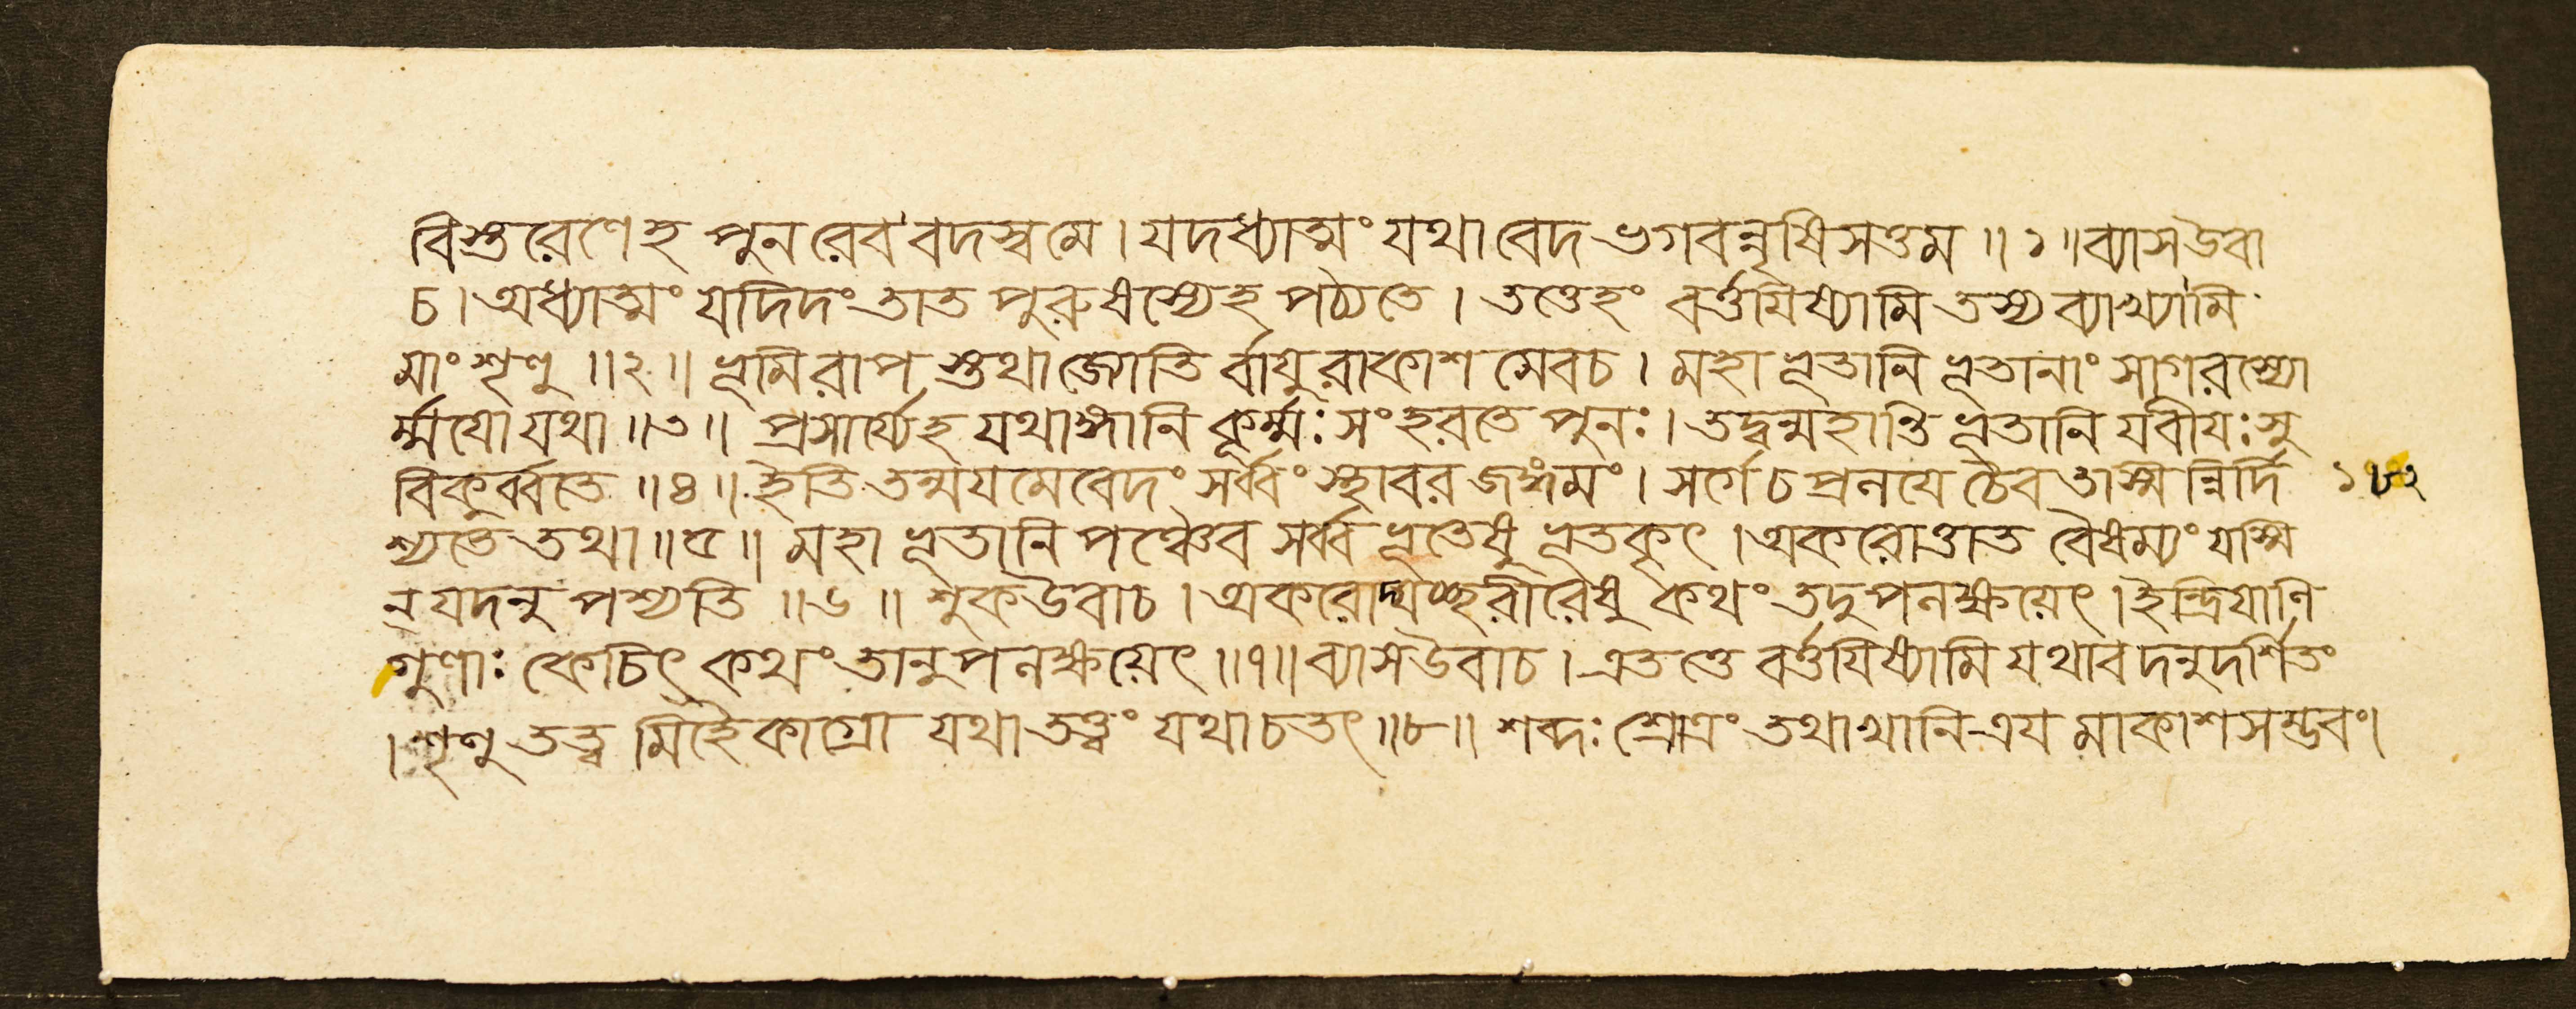 বিস্তরেণেহ পুনরেব বদস্ব মে । যদধ্যাত্মং যথা বেদ ভগবন্নৃষিসত্তম ॥ ১ ॥ ব্যাস উবা
চ । অধ্যাত্মং যদিদং তাত পুরুষস্যেহ পঠ্যতে । তত্তেহং বর্ত্তযিষ্যামি তস্য ব্যাখ্যামি
মাং শৃণু ॥ ২ ॥ ভূমিরাপস্তথা জ্যোতির্বাযুরাকাশমেব চ । মহাভূতানি ভূতানাং সাগরস্যো
র্ম্ময়ো যথা ॥ ৩ ॥ প্রসার্য্যেহ যথাঙ্গানি কূর্ম্মঃ সংহরতে পুনঃ । তদ্বন্মহান্তি ভূতানি যবীযঃসু
বিকুর্ব্বতে ॥ ৪ ॥ ইতি তন্ময়মেবেদং সর্ব্বং স্থাবরজঙ্গমং । সর্গে চ প্রলযে চৈব তাস্মিন্নির্দি ১৮২
শ্যতে তথা ॥ ৫ ॥ মহাভূতানি পঞ্চৈব সর্ব্বভূতেষু ভূতকৃৎ । অকরোত্তাত বৈষম্যং যস্মি
ন্ যদনুপশ্যতি ॥ ৬ ॥ শুক উবাচ । অকরোদ্যচ্ছরীরেষু কথং তদুপলক্ষয়েৎ । ইন্দ্রিযাণি
গুণাঃ কেচিৎ কথং তানুপলক্ষয়েৎ ॥ ৭ ॥ ব্যাস উবাচ । এতত্তে বর্ত্তযিষ্যামি যথাবদনুদর্শিতং
। শৃণু তত্ত্বমিহৈকাগ্রো যথাতত্ত্বং যথা চ তৎ ॥ ৮ ॥ শব্দঃ শ্রোত্রং তথা খানি ত্রয়মাকাশসম্ভবং ।